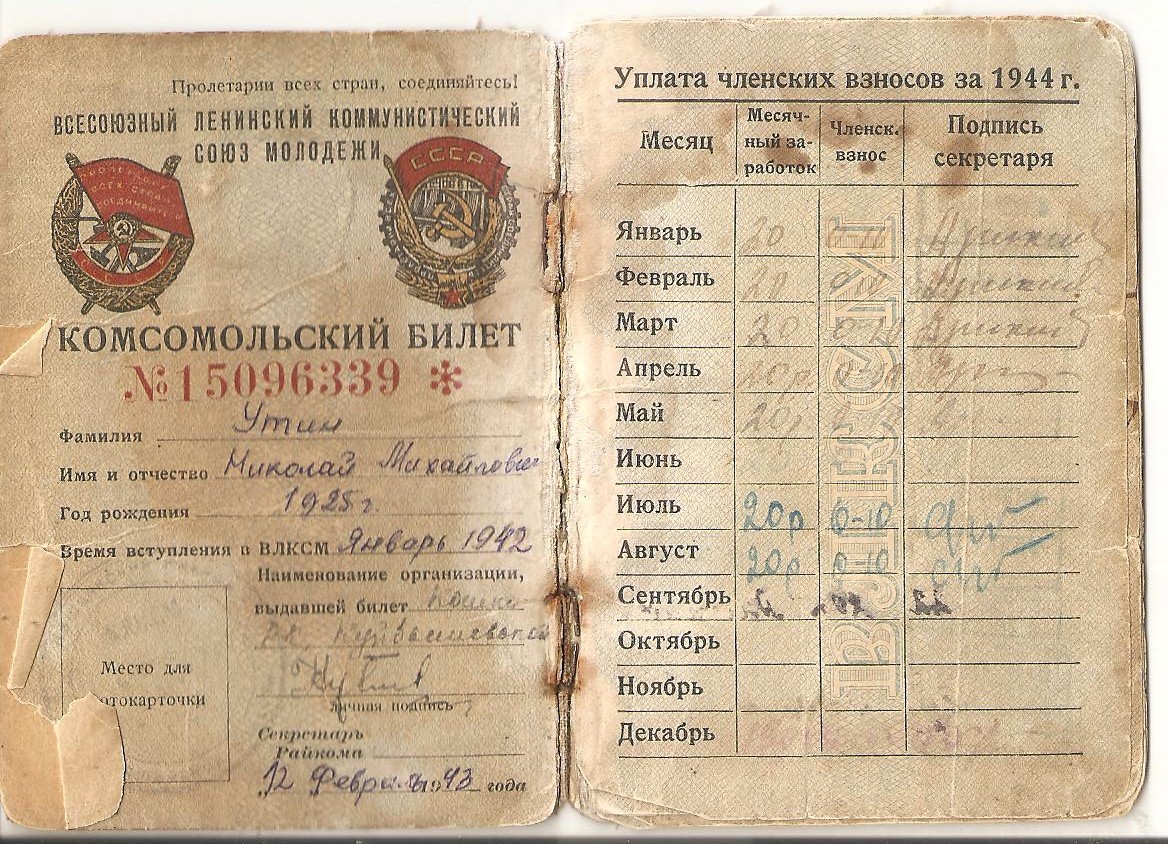 Пролетарии всех стран, соединяйтесь!
ВСЕСОЮЗНЫЙ ЛЕНИНСКИЙ КОММУНИСТИЧЕСКИЙ
СОЮЗ МОЛОДЕЖИ
ПРОЛЕТАРИИ
ВСЕХ СТРАН
СОЕДИНЯЙТЕСЬ
СССР
КОМСОМОЛЬСКИЙ БИЛЕТ
№15096339 *
Фамилия Утин
Имя и отчество Николай Михайлович
Год рождения 1925 г.
Время вступления в ВЛКСМ Январь 1942
Наименование организации,
выдавшей билет
Место для
отокарточки
личная подпись
Секретарь
Райкома
"12 Февраль 1943 года
Уплата членских взносов за 1944 г.
Месяц Месяч-ный за-работок Членск. взнос Подпись секретаря
Январь 20
Февраль 20
Март 20 0-10
Апрель 20р
Май 20р
Июнь
Июль 20р 0-10
Август 20р 0-10
Сентябрь
Октябрь
Ноябрь
Декабрь
ВЛКСМ